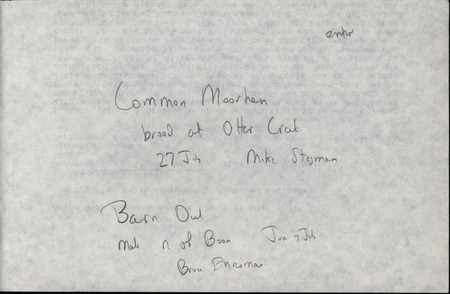 enter
Common Moorhen
brood at Otter Creek
27 July Mike Stegmann
Barn Owl
male n of Boone Jun & July
Bruce Ehresman